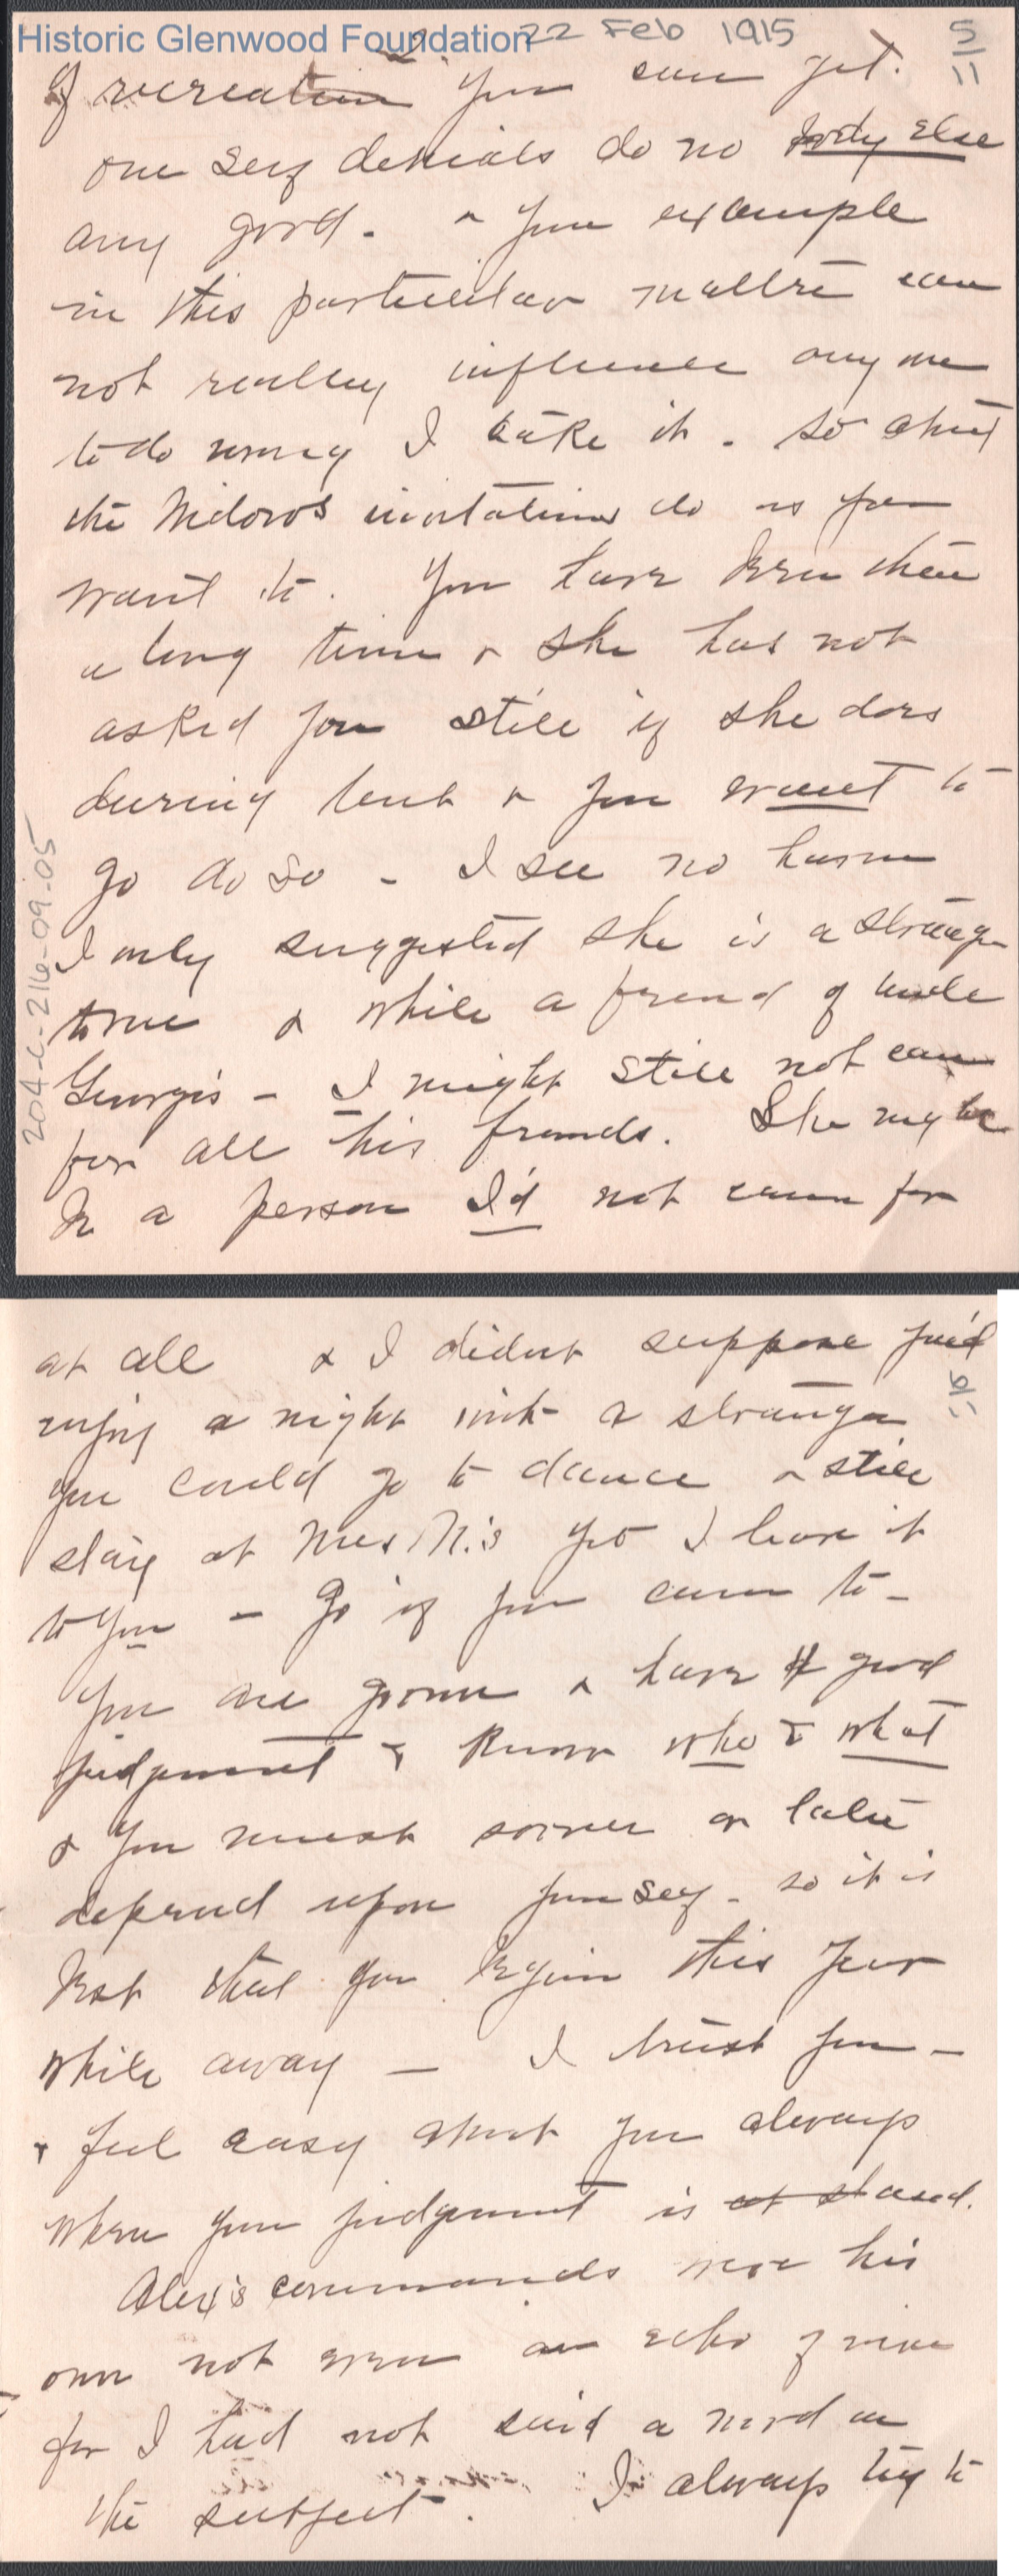 Historic Glenwood Foundation
22 Feb 1915
5/11
2.
of recreation you can get.
one self denials do no body else
any good. & your example
in this particular matter can
not really influence any one
to do wrong I take it. So about
the Widow's invitations do as you
want to. You have been there
a long time & she has not
asked you still if she does
during lent & you want to
go do so - I see no harm
I only suggested she is a stranger
true & while a friend of Uncle
George's - I might still not care
for all his friends. She may be
be a person I'd not care for
204-C-216-09-05
6/11
at all & I didnt suppose you'd
enjoy a night with a stranger
you could go to dance & still
stay at Mrs N.'s yet I leave it
to you - Go if you care to -
You are grown & have good
judgment & know who & what
& you must sooner or later
depend upon yourself - so it is
best that you begin this year
while away - I trust you -
& feel easy about you always
when your judgment is at stand.
Alex's commands were his
own not even an echo of mine
for I had not said a word on
the subject. I always try to